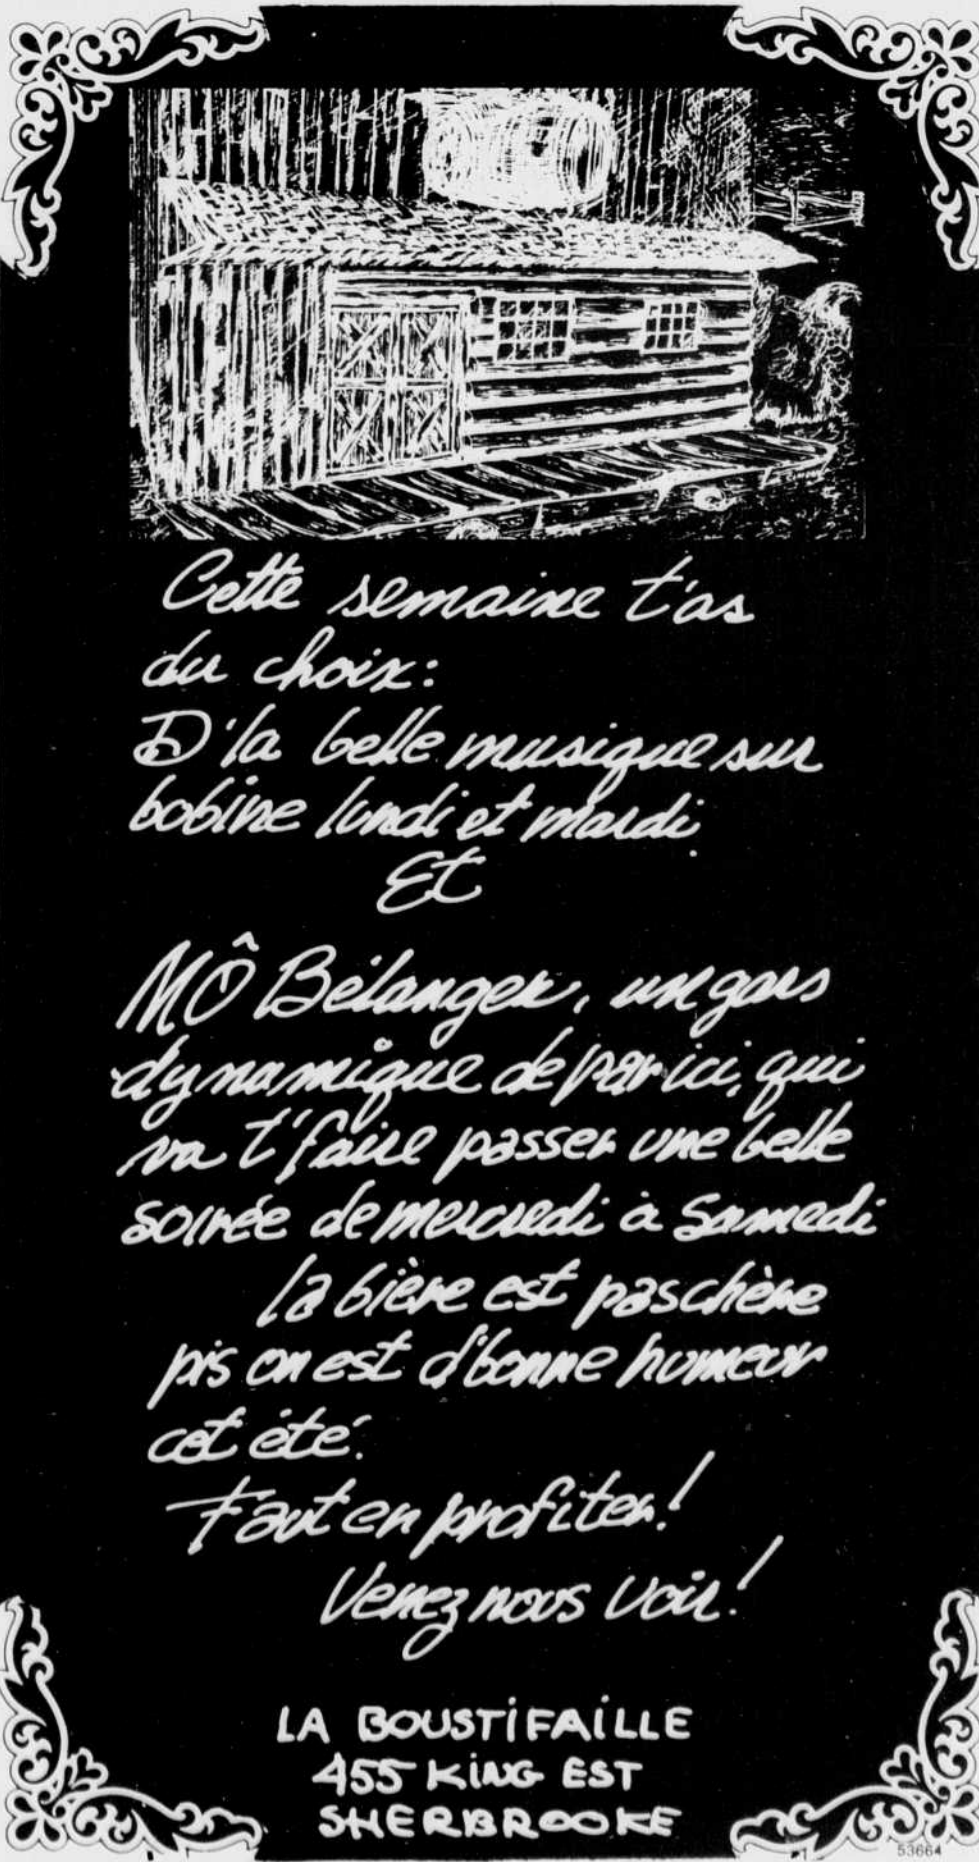 Cette semaine t'as
du choix:
D'la belle musique sur
bobine lundi et mardi
Et
MÔ Bélanger, un gars
dynamique de par ici, qui
va t'faire passer une belle
soirée de mercredi à Samedi
la bière est pas chère
pis on est d'bonne humeur
cet été.
Faut en profiter!
Venez nous voir!
LA BOUSTIFAILLE
455 KING EST
SHERBROOKE
53664